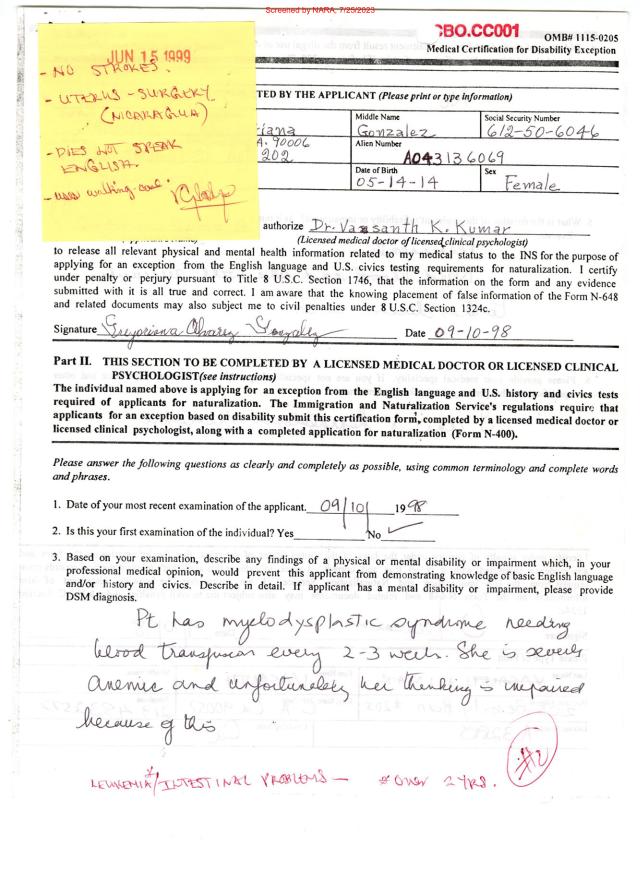 Screened by NARA, 7/25/2023
CBO.CC001
OMB# 1115-0205
Medical Certification for Disability Exception
JUN 15 1999
- NO STROKES.
- UTERUS - SURGERY
(NICARAGUA)
- DIES NOT SPEAK
ENGLISH.
- uses walking cane.
TED BY THE APPLICANT (Please print or type information)
iana
Middle Name
Gonzalez
Social Security Number
612-50-6046
A. 90006
202
Alien Number
A043136069
Date of Birth
05-14-14
Sex
Female
authorize Dr. Vasanth K. Kumar
(Licensed medical doctor of licensed clinical psychologist)
to release all relevant physical and mental health information related to my medical status to the INS for the purpose of
applying for an exception from the English language and U.S. civics testing requirements for naturalization. I certify
under penalty or perjury pursuant to Title 8 U.S.C. Section 1746, that the information on the form and any evidence
submitted with it is all true and correct. I am aware that the knowing placement of false information of the Form N-648
and related documents may also subject me to civil penalties under 8 U.S.C. Section 1324c.
Signature Gregoriana Alvarez Gonzalez Date 09-10-98
Part II. THIS SECTION TO BE COMPLETED BY A LICENSED MEDICAL DOCTOR OR LICENSED CLINICAL
PSYCHOLOGIST(see instructions)
The individual named above is applying for an exception from the English language and U.S. history and civics tests
required of applicants for naturalization. The Immigration and Naturalization Service's regulations require that
applicants for an exception based on disability submit this certification form, completed by a licensed medical doctor or
licensed clinical psychologist, along with a completed application for naturalization (Form N-400).
Please answer the following questions as clearly and completely as possible, using common terminology and complete words
and phrases.
1. Date of your most recent examination of the applicant. 09/10/ 1998
2. Is this your first examination of the individual? Yes No ✓
3. Based on your examination, describe any findings of a physical or mental disability or impairment which, in your
professional medical opinion, would prevent this applicant from demonstrating knowledge of basic English language
and/or history and civics. Describe in detail. If applicant has a mental disability or impairment, please provide
DSM diagnosis.
Pt has myelodysplastic syndrome needing
blood transfusion every 2-3 weeks. She is severely
anemic and unfortunately her thinking is impaired
because of this
LEUKEMIA*/INTESTINAL PROBLEMS — * OVER 2 YRS.
#2